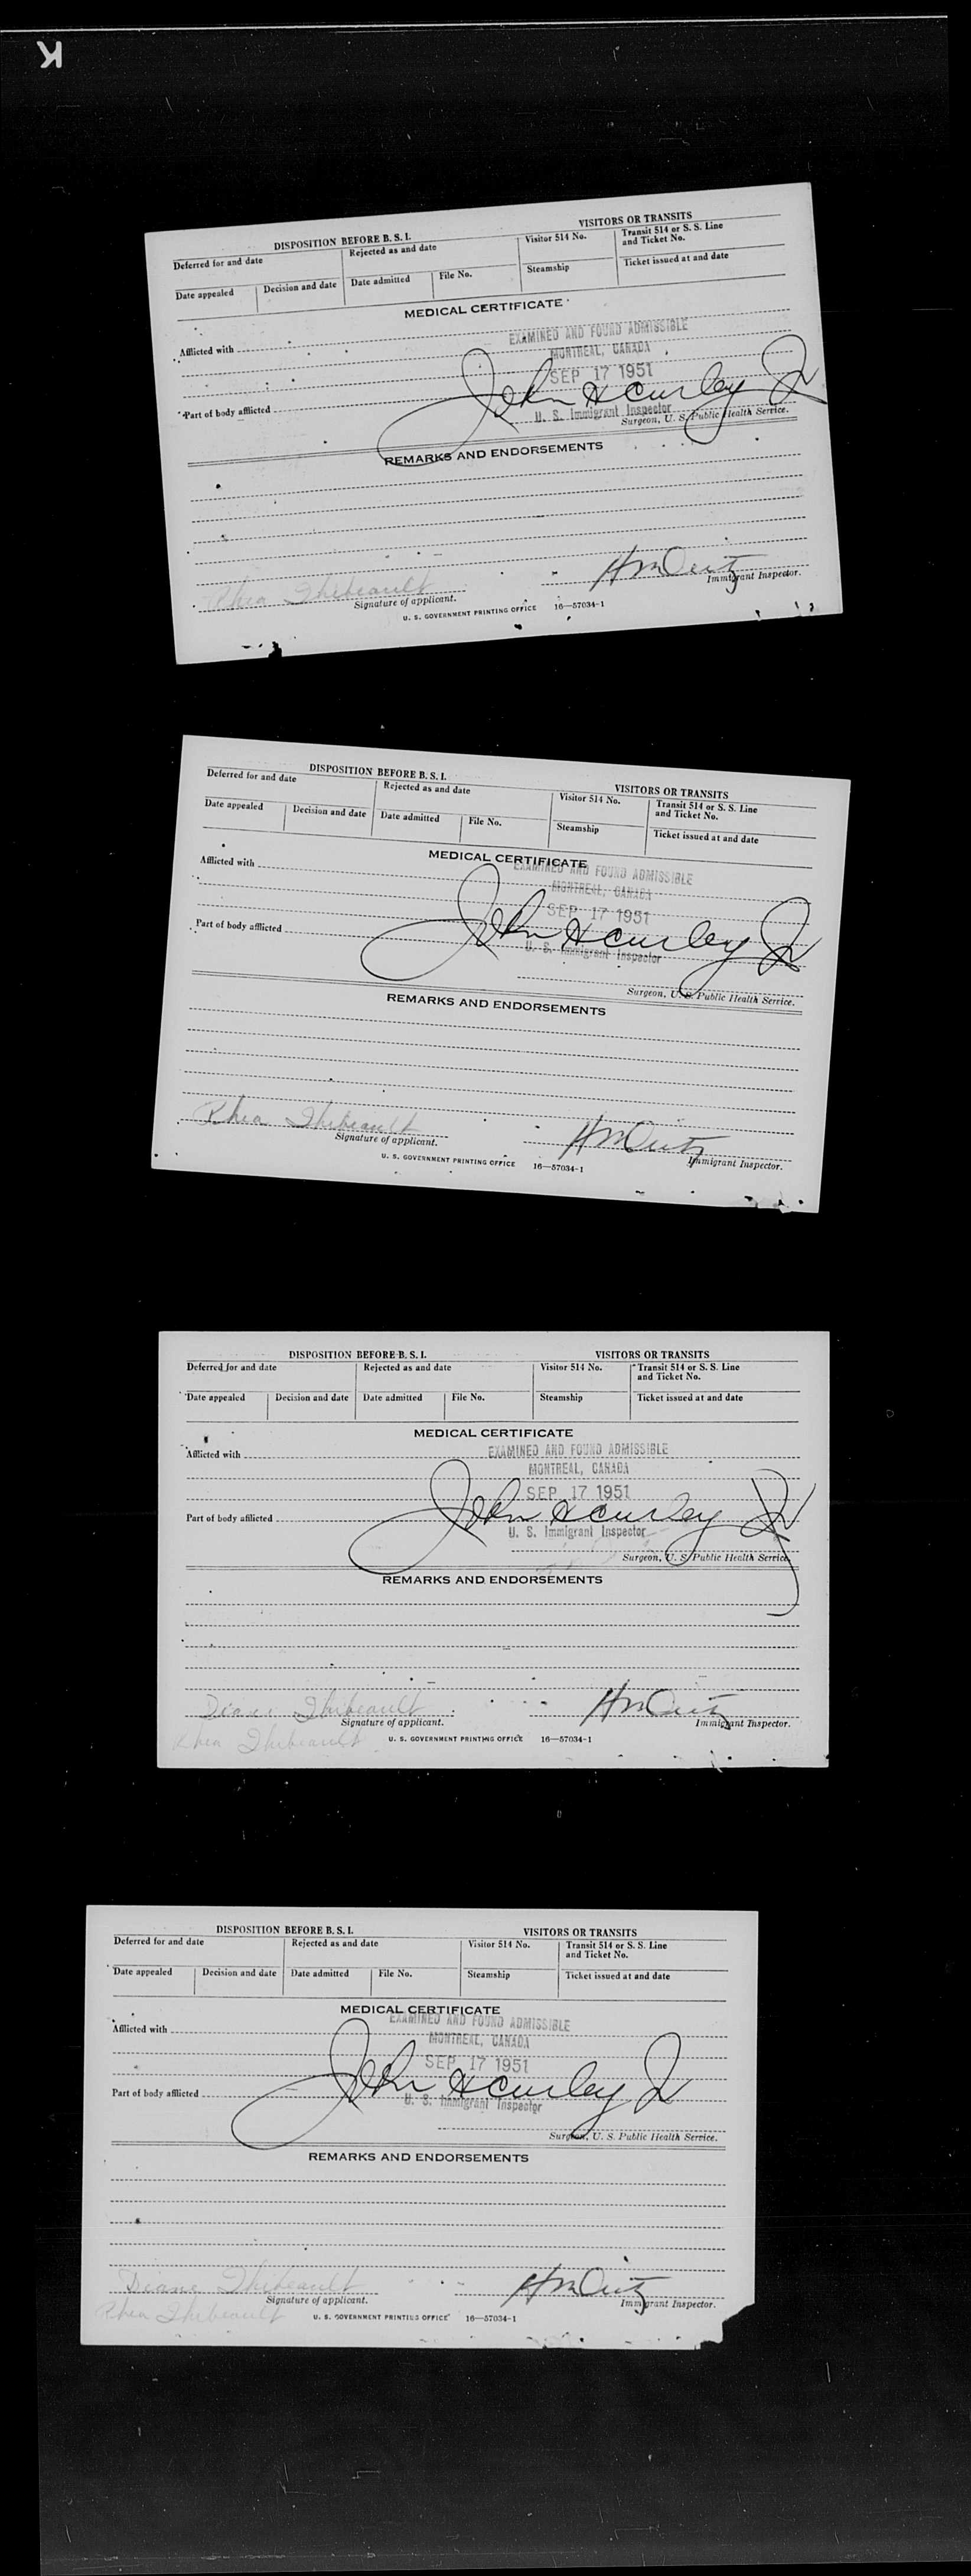 K
DISPOSITION BEFORE B. S. I. VISITORS OR TRANSITS
Deferred for and date Rejected as and date Visitor 514 No. Transit 514 or S. S. Line and Ticket No.
Date appealed Decision and date Date admitted File No. Steamship Ticket issued at and date
MEDICAL CERTIFICATE
EXAMINED AND FOUND ADMISSIBLE
Afflicted with
MONTREAL, CANADA
SEP 17 1951
John H Curley Jr
Part of body afflicted
U. S. Immigrant Inspector
Surgeon, U. S. Public Health Service.
REMARKS AND ENDORSEMENTS
Rhea Thibeault
Signature of applicant. Immigrant Inspector.
U. S. GOVERNMENT PRINTING OFFICE 16—57034-1
DISPOSITION BEFORE B. S. I. VISITORS OR TRANSITS
Deferred for and date Rejected as and date Visitor 514 No. Transit 514 or S. S. Line and Ticket No.
Date appealed Decision and date Date admitted File No. Steamship Ticket issued at and date
MEDICAL CERTIFICATE
EXAMINED AND FOUND ADMISSIBLE
Afflicted with
MONTREAL, CANADA
SEP 17 1951
John H Curley Jr
Part of body afflicted
U. S. Immigrant Inspector
Surgeon, U. S. Public Health Service.
REMARKS AND ENDORSEMENTS
Rhea Thibeault
Signature of applicant. Immigrant Inspector.
U. S. GOVERNMENT PRINTING OFFICE 16—57034-1
DISPOSITION BEFORE B. S. I. VISITORS OR TRANSITS
Deferred for and date Rejected as and date Visitor 514 No. Transit 514 or S. S. Line and Ticket No.
Date appealed Decision and date Date admitted File No. Steamship Ticket issued at and date
MEDICAL CERTIFICATE
EXAMINED AND FOUND ADMISSIBLE
Afflicted with
MONTREAL, CANADA
SEP 17 1951
John H Curley Jr
Part of body afflicted
U. S. Immigrant Inspector
Surgeon, U. S. Public Health Service.
REMARKS AND ENDORSEMENTS
Diane Thibeault
Signature of applicant. Immigrant Inspector.
Rhea Thibeault
U. S. GOVERNMENT PRINTING OFFICE 16—57034-1
DISPOSITION BEFORE B. S. I. VISITORS OR TRANSITS
Deferred for and date Rejected as and date Visitor 514 No. Transit 514 or S. S. Line and Ticket No.
Date appealed Decision and date Date admitted File No. Steamship Ticket issued at and date
MEDICAL CERTIFICATE
EXAMINED AND FOUND ADMISSIBLE
Afflicted with
MONTREAL, CANADA
SEP 17 1951
John H Curley Jr
Part of body afflicted
U. S. Immigrant Inspector
Surgeon, U. S. Public Health Service.
REMARKS AND ENDORSEMENTS
Diane Thibeault
Signature of applicant. Immigrant Inspector.
Rhea Thibeault
U. S. GOVERNMENT PRINTING OFFICE 16—57034-1